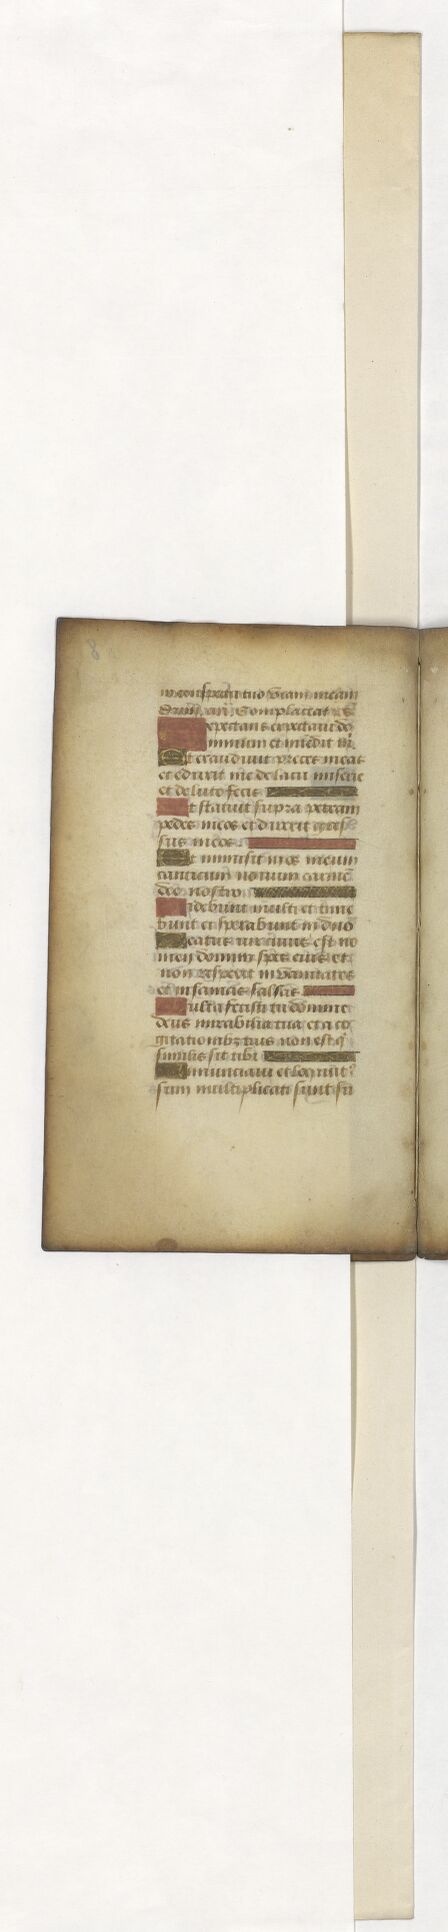 in conspectu tuo viam meam
Complaceat
Expectans expectavi do
minum et intēdit m̄
Et exaudivit preces meas
et eduxit me de lacu miserie
et de luto fecis
Et statuit supra petram
pedes meos et direxit gres
sus meos
Et inmisit in os meum
canticum novum carmē
deo nostro
Videbunt multi et time
bunt et sperabunt in dn̄o
Beatus vir cuius est no
men domini spes eius et
non respexit in vanitates
et insanias falsas
Multa fecisti tu domine
deus mirabilia tua et a co
gitationibꝫ tuis non est q̄
similis sit tibi
Annunciavi et locutus
sum multiplicati sunt su